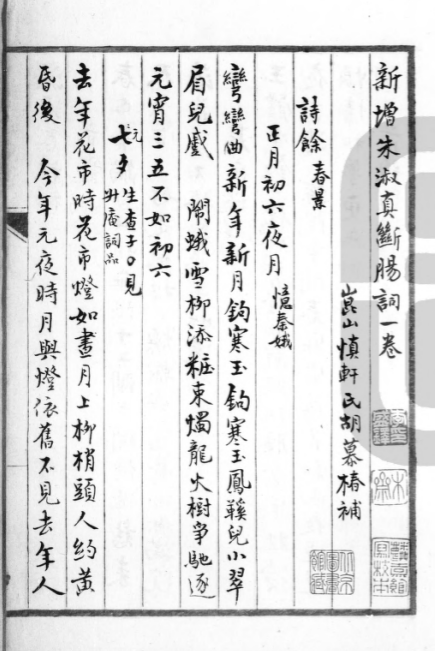 新增朱淑真斷腸詞一卷
崑山慎軒氏胡慕椿補
詩餘 春景
正月初六夜月 憶秦娥
彎彎曲新年新月鈎寒玉鈎寒玉鳳鞵兒小翠
眉兒蹙 鬧蛾雪柳添粧束燭龍火樹爭馳逐
元宵三五不如初六
七夕 元 生查子〇見升庵詞品
去年花市時花市燈如晝月上柳梢頭人約黃
昏後 今年元夜時月與燈依舊不見去年人